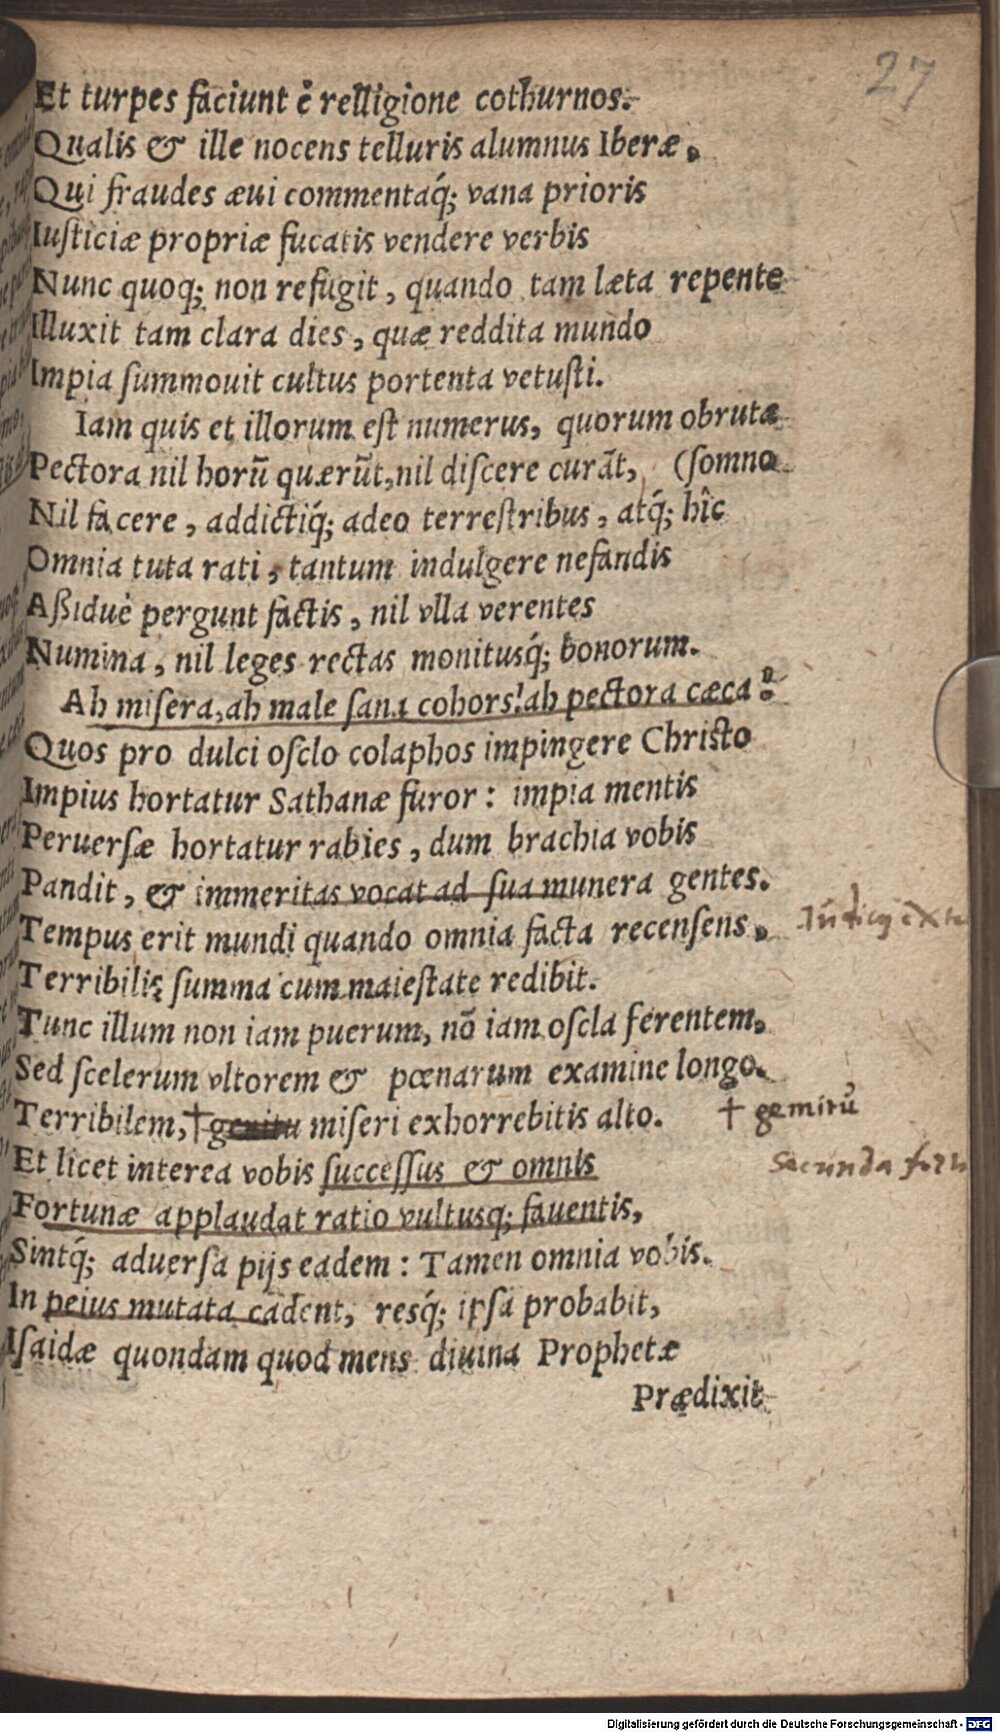 27
Et turpes faciunt è relligione cothurnos.
Qualis & ille nocens telluris alumnus Iberæ.
Qui fraudes æui commentaq́; vana prioris
Iusticiæ propriæ fucatis vendere verbis
Nunc quoq; non refugit, quando tam læta repente
Illuxit tam clara dies, quæ reddita mundo
Impia summouit cultus portenta vetusti.
Iam quis et illorum est numerus, quorum obruta
Pectora nil horū quærūt, nil discere curāt, (somno
Nil facere, addictiq́; adeo terrestribus, atq́; hîc
Omnia tuta rati, tantum indulgere nefandis
Aßiduè pergunt factis, nil vlla verentes
Numina, nil leges rectas monitusq́; bonorum.
Ah misera, ah male sana cohors! ah pectora cæca:
Quos pro dulci osclo colaphos impingere Christo
Impius hortatur Sathanæ furor: impia mentis
Peruersæ hortatur rabies, dum brachia vobis
Pandit, & immeritas vocat ad sua munera gentes.
Tempus erit mundi quando omnia facta recensens,
Terribilis summa cum maiestate redibit.
Tunc illum non iam puerum, nō iam oscla ferentem,
Sed scelerum vltorem & pœnarum examine longo.
Terribilem, † genitu miseri exhorrebitis alto. † gemitū
Et licet interea vobis successus & omnis Secunda
Fortunæ applaudat ratio vultusq; fauentis,
Sintq́; aduersa pijs eadem: Tamen omnia vobis.
In peius mutata cadent, resq́; ipsa probabit,
Isaidæ quondam quod mens diuina Prophetæ
Prædixit
Digitalisierung gefördert durch die Deutsche Forschungsgemeinschaft - DFG